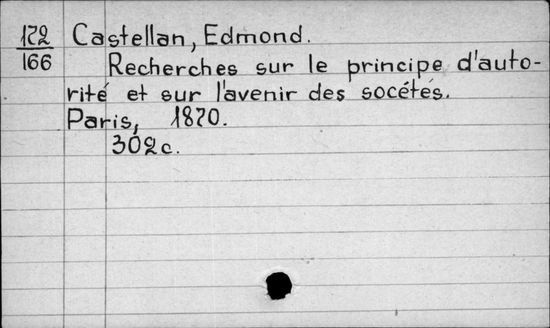 172 Castellan, Edmond.
166 Recherches sur le principe d'auto-
rité et sur l'avenir des socétés.
Paris, 1870.
302c.